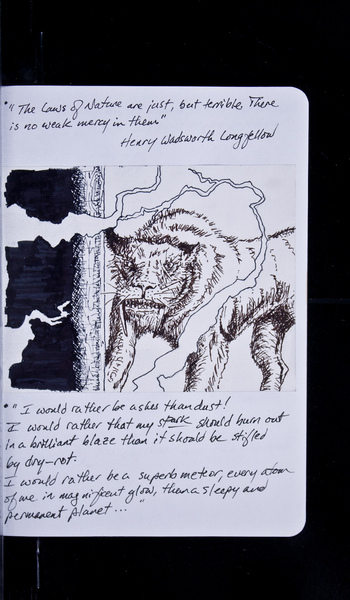 • "The Laws of Nature are just, but terrible. There
is no weak mercy in them."
Henry Wadsworth Longfellow
• "I would rather be ashes than dust!
I would rather that my spark should burn out
in a brilliant blaze than it should be stifled
by dry-rot.
I would rather be a superb meteor, every atom
of me in magnificent glow, than a sleepy and
permanent planet..."